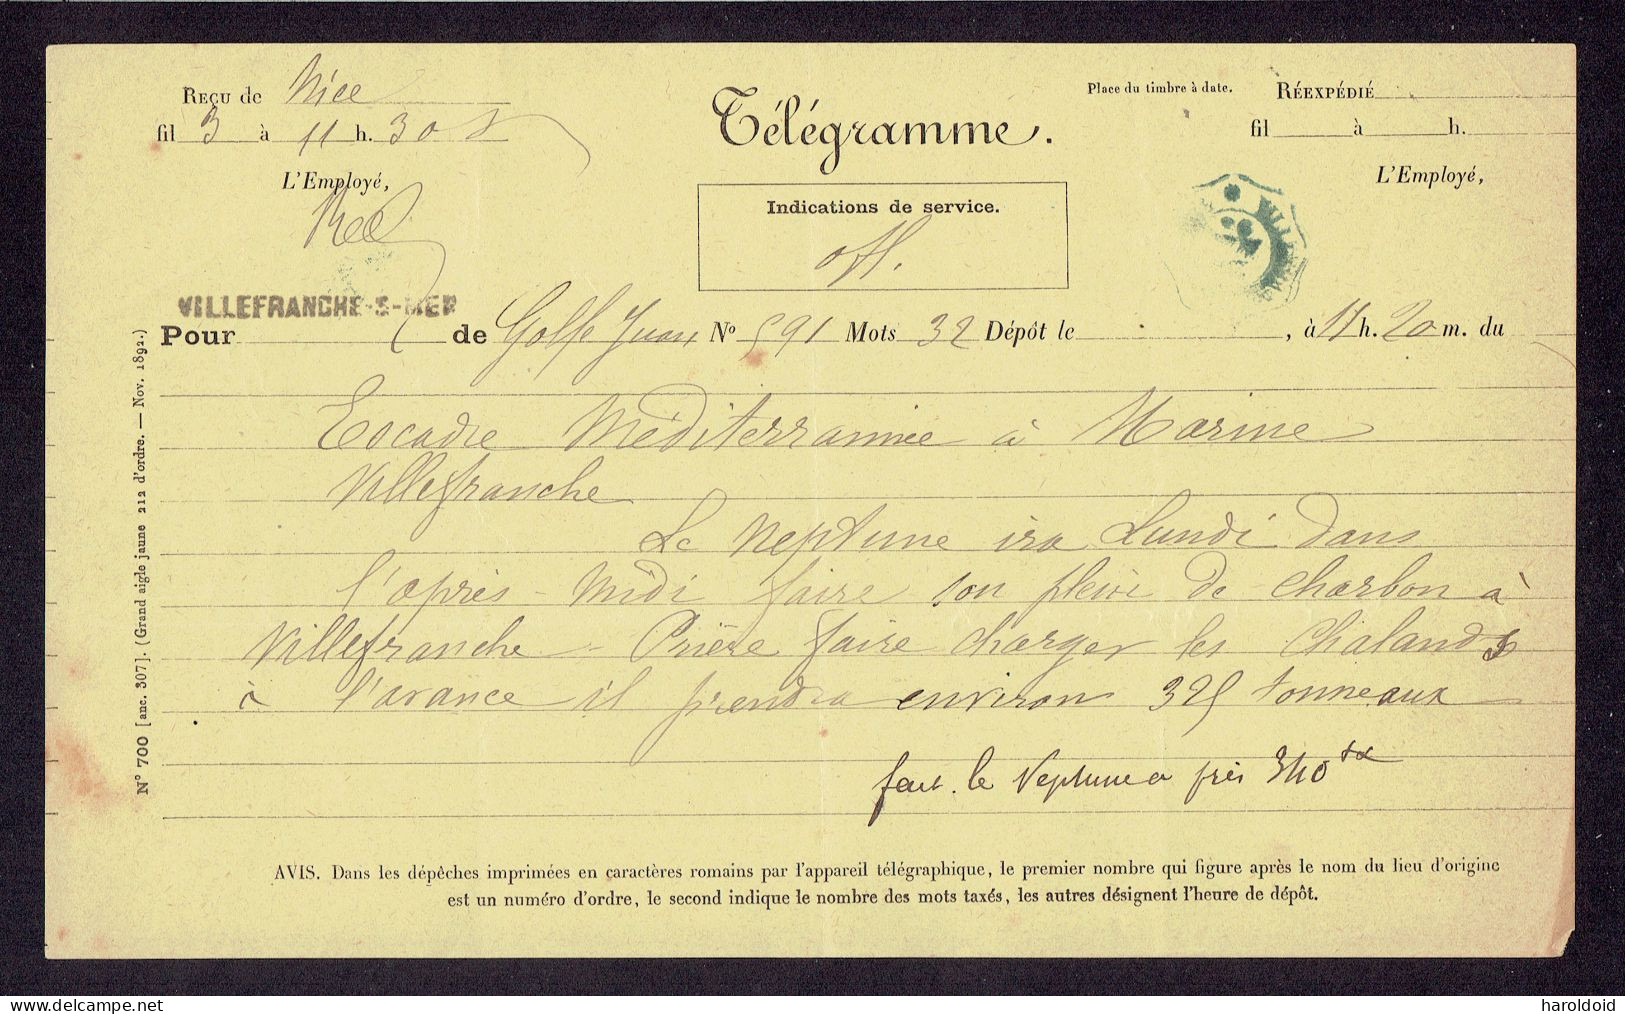 Reçu de Nice
fil 3 à 11 h. 30
L'Employé,
Télégramme.
Indications de service.
off.
Place du timbre à date.
Réexpédié
fil à h.
L'Employé,
VILLEFRANCHE-S-MER
Pour de Golfe Juan N° 591 Mots 32 Dépôt le , à 11 h. 20 m. du
Escadre Méditerrannée à Marine
Villefranche
Le Neptune ira Lundi dans
l'après-midi faire son plein de charbon à
Villefranche - Prière faire charger les chalands
à l'avance il prendra environ 325 tonneaux
fait. le Neptune a pris 340 tx
N° 700 [anc. 307]. (Grand aigle jaune 212 d'ordre. — Nov. 1892.)
AVIS. Dans les dépêches imprimées en caractères romains par l'appareil télégraphique, le premier nombre qui figure après le nom du lieu d'origine
est un numéro d'ordre, le second indique le nombre des mots taxés, les autres désignent l'heure de dépôt.
www.delcampe.net
haroldoid